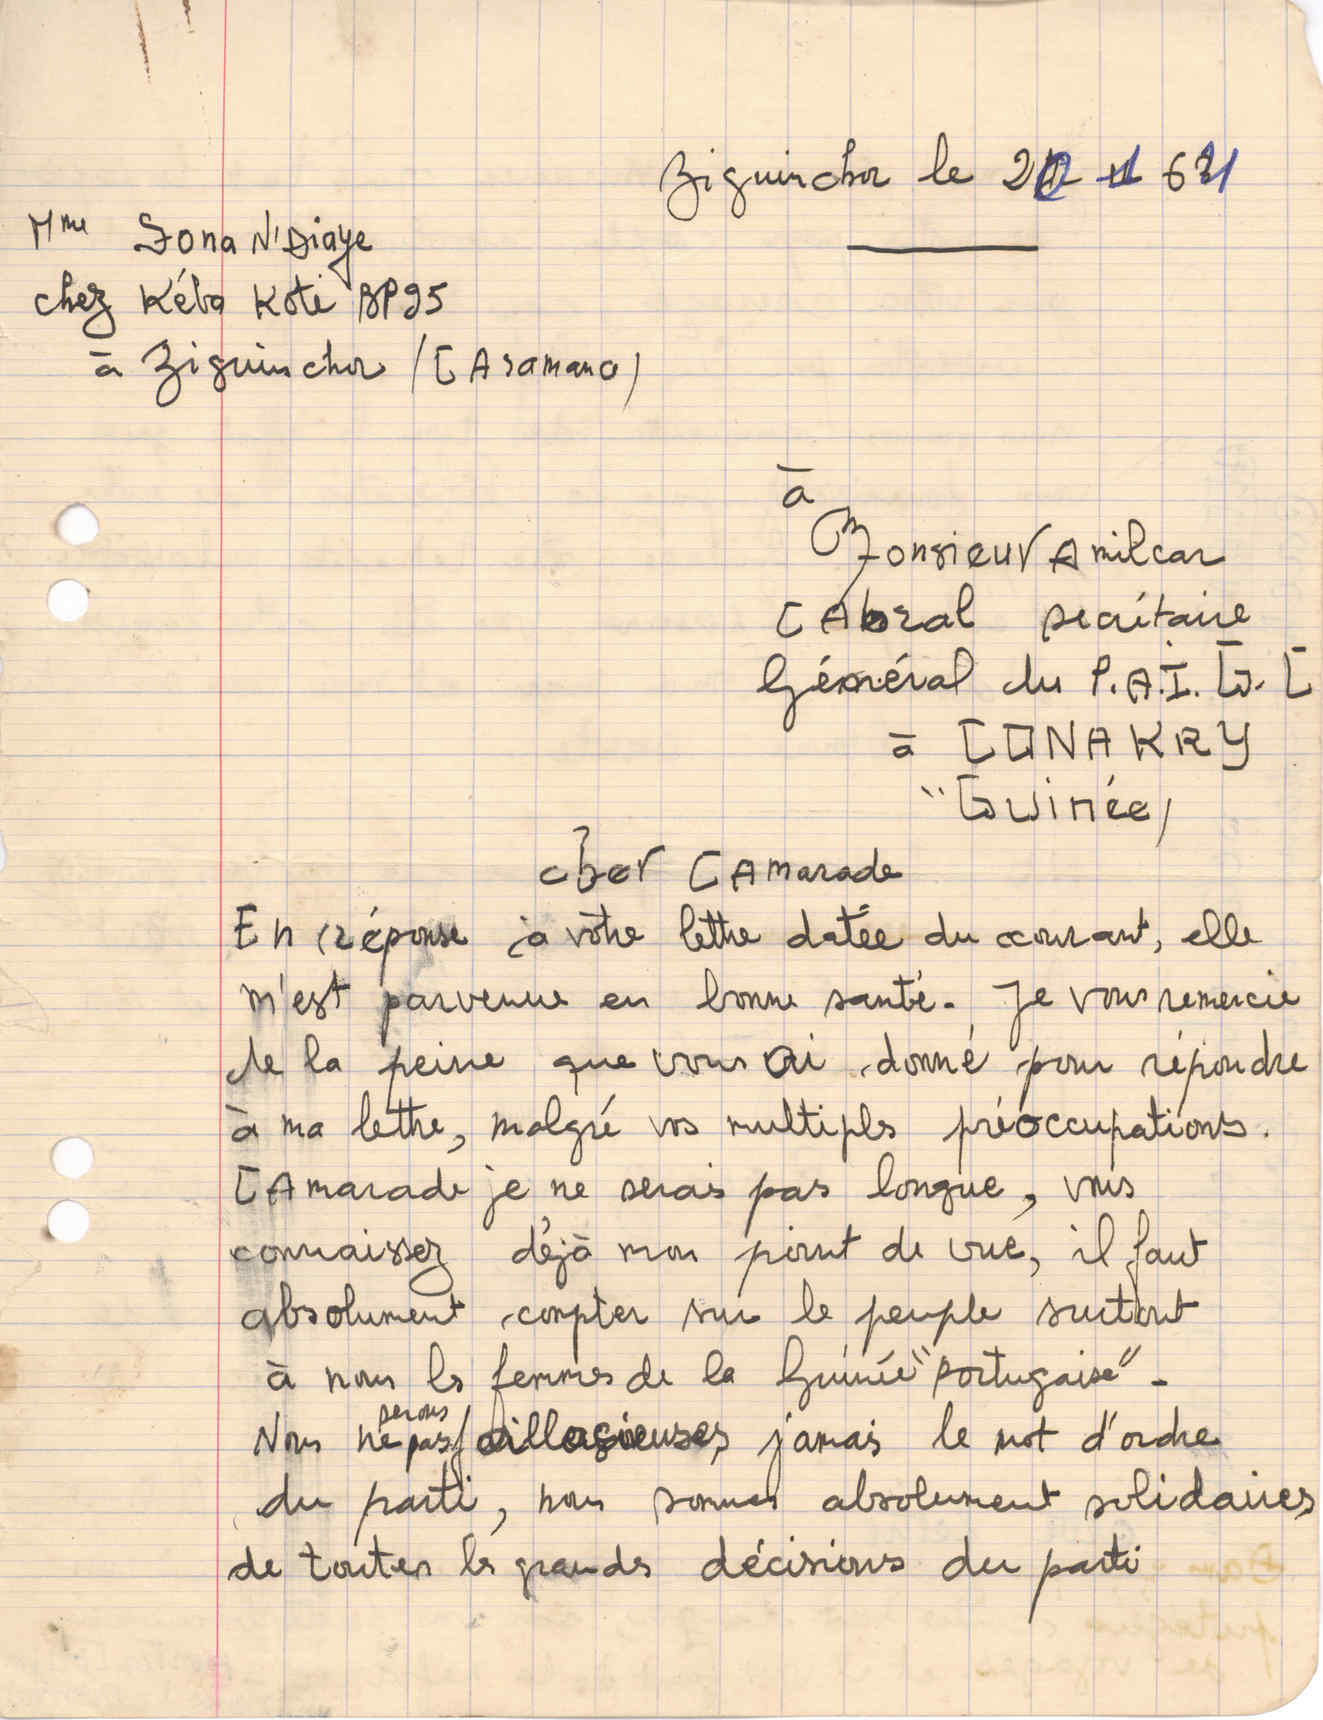 Ziguinchor le
Mme Fona N'Diaye
chez Kéba Koté BP95
à Ziguinchor (CAsamanc)
à
Monsieur Amilcar
CAbral secrétaire
Général du P.A.I.G.C
à CONAKRY
"Guinée)
cher CAmarade
En réponse à vôtre lettre datée du courant, elle
m'est parvenue en bonne santé. Je vous remercie
de la peine que vous ai donné pour répondre
à ma lettre, malgré vos multiples préoccupations.
CAmarade je ne serais pas longue, vous
connaissez déjà mon point de vue, il faut
absolument compter sur le peuple surtout
à nous les femmes de la Guinée "portugaise" -
serons
Nous ne pas jamais le mot d'ordre
du parti, nous sommes absolument solidaires
de toutes les grandes décisions du parti